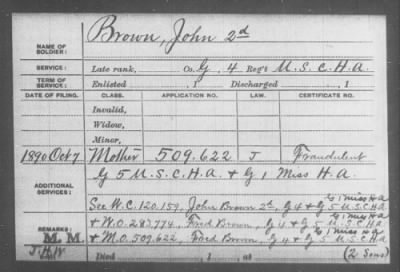 NAME OF SOLDIER: Brown, John 2d
SERVICE: Late rank, Co. G, 4 Reg't U.S.C.H.A.
TERM OF SERVICE: Enlisted , 1 Discharged , 1
DATE OF FILING. CLASS. APPLICATION NO. LAW. CERTIFICATE NO.
Invalid,
Widow,
Minor,
1890 Oct 7 Mother 509.622 J Fraudulent
ADDITIONAL SERVICES: G 5 U.S.C.H.A. & G 1 Miss H.A.
G 1 Miss H.A.
See W.C. 120.159, John Brown 2d, G 4 & G 5 U.S.C.H.A
G 1 Miss H.A
& W.O. 283.774, Ford Brown, G 4 & G 5 U.S.C.H.A
G 1 Miss H.A
REMARKS: M. M. & M.O. 509.622, Ford Brown, G 4 & G 5 U.S.C.H.A
J.H.W. Died , 1 at (2 Sons)